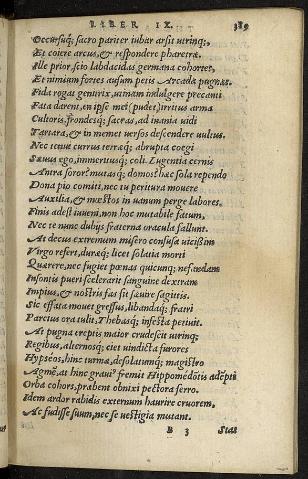 LIBER IX. 389
Occursuq; sacro pariter iubar arsit utrinq;,
Et coiere arcus, & respondere pharetræ.
Ille prior, scio labdacidas germana cohortes,
Et nimium fortes ausum petis Arcada pugnas.
Fida rogat genitrix, utinam indulgere precanti
Fata darent, en ipse mei (pudet) irritus arma
Cultoris, frondesq; sacras, ad inania uidi
Tartara, & in memet uersos descendere uultus.
Nec tenui currus terraq; abrupta coegi
Sæuus ego, immeritusq; coli. Lugentia cernis
Antra soror? mutasq; domos? hæc sola rependo
Dona pio comiti, nec tu peritura mouere
Auxilia, & mœstos in uanum perge labores.
Finis adest iuueni, non hoc mutabile fatum,
Nec te nunc dubijs fraterna oracula fallunt.
At decus extremum misero confusa uicissim
Virgo refert, duræq; licet solatia morti
Quærere, nec fugiet pœnas quicunq; nefandam
Insontis pueri scelerarit sanguine dextram
Impius, & nostris fas sit sæuire sagittis.
Sic effata mouet gressus, libandaq; fratri
Parcius ora tulit, Thebasq; infesta petiuit.
At pugna ereptis maior crudescit utrinq;
Regibus, alternosq; ciet uindicta furores
Hypseos, hinc turmæ, desolatumq; magistro
Agmẽ, at hinc grauiꝰ fremit Hippomedõtis adẽpti
Orba cohors, præbent obnixi pectora ferro.
Idem ardor rabidis externum haurire cruorem,
Ac fudisse suum, nec se uestigia mutant.
B 3 Stat